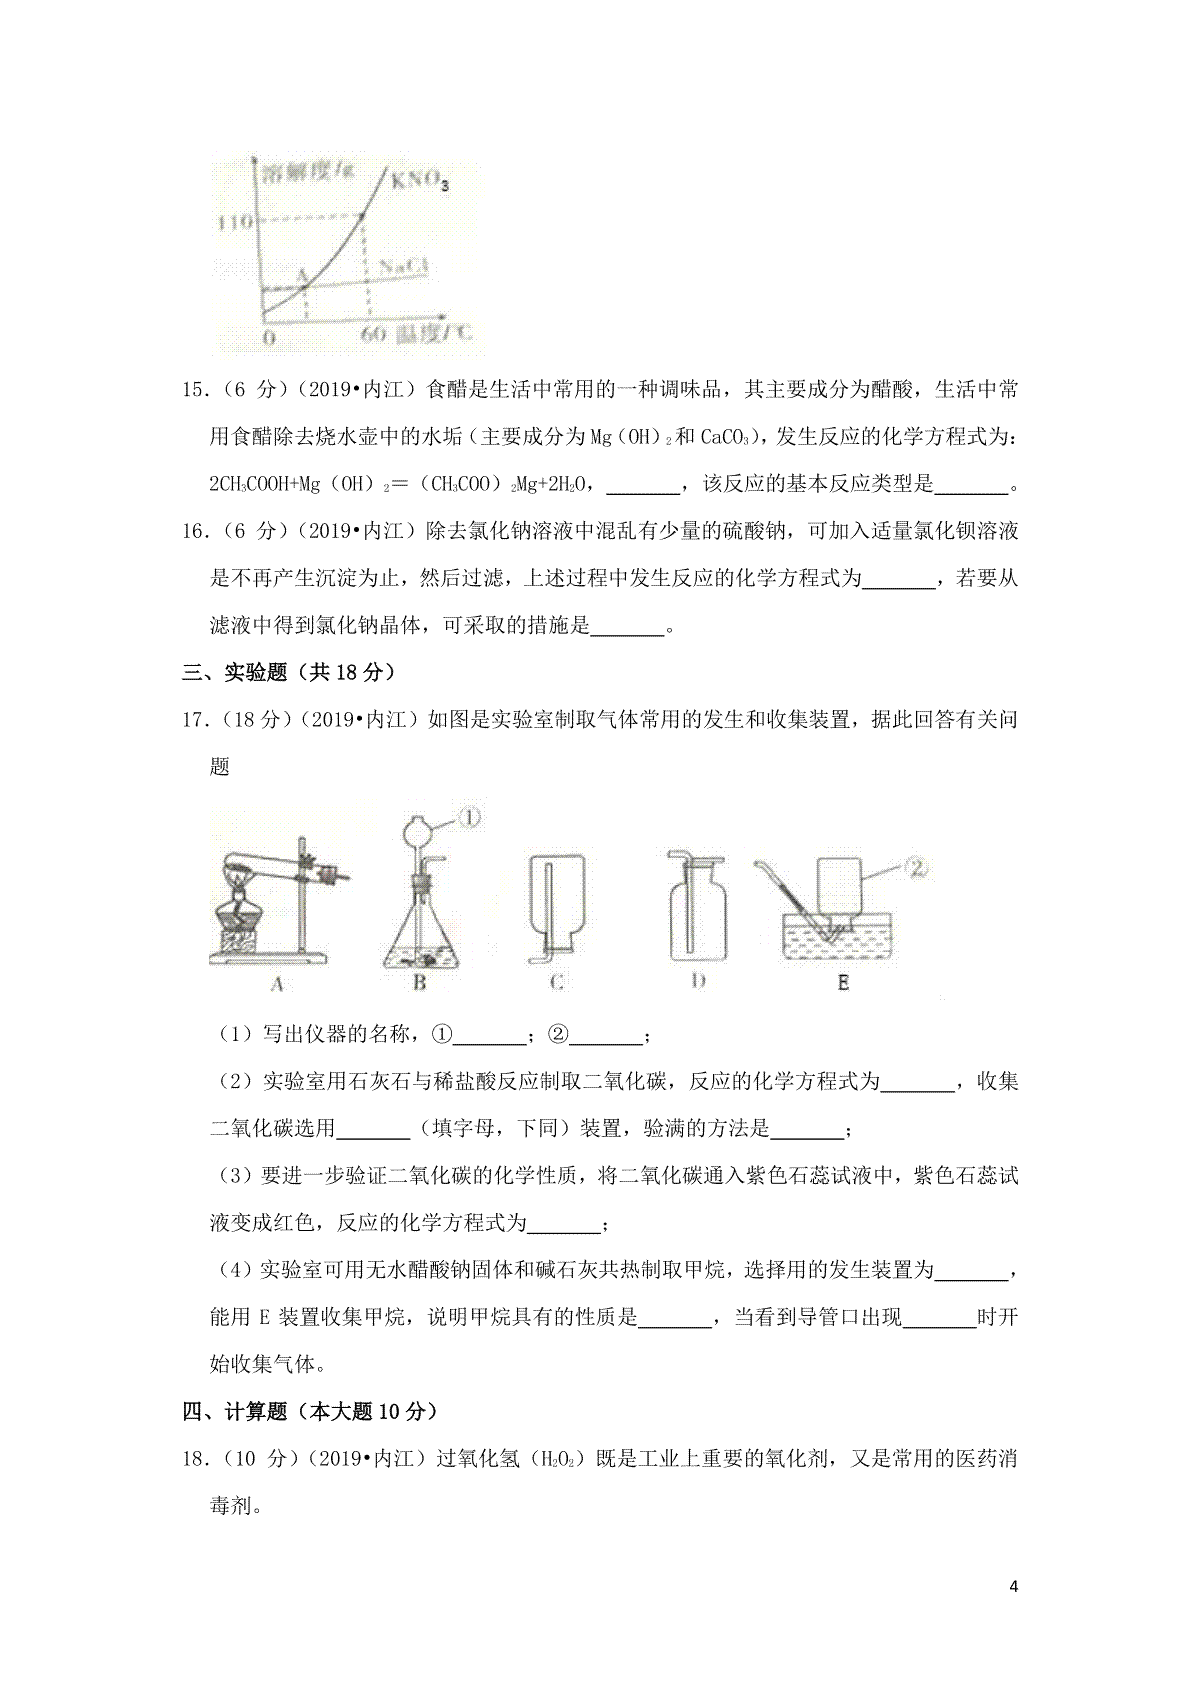 溶解度/g
KNO3
110
A
NaCl
0
60 温度/℃
15.（6 分）（2019•内江）食醋是生活中常用的一种调味品，其主要成分为醋酸，生活中常
用食醋除去烧水壶中的水垢（主要成分为Mg（OH）2和CaCO3），发生反应的化学方程式为：
2CH3COOH+Mg（OH）2＝（CH3COO）2Mg+2H2O，_______，该反应的基本反应类型是_______。
16.（6 分）（2019•内江）除去氯化钠溶液中混乱有少量的硫酸钠，可加入适量氯化钡溶液
是不再产生沉淀为止，然后过滤，上述过程中发生反应的化学方程式为_______，若要从
滤液中得到氯化钠晶体，可采取的措施是_______。
三、实验题（共18分）
17.（18分）（2019•内江）如图是实验室制取气体常用的发生和收集装置，据此回答有关问
题
①
②
A B C D E
（1）写出仪器的名称，①_______；②_______；
（2）实验室用石灰石与稀盐酸反应制取二氧化碳，反应的化学方程式为_______，收集
二氧化碳选用_______（填字母，下同）装置，验满的方法是_______；
（3）要进一步验证二氧化碳的化学性质，将二氧化碳通入紫色石蕊试液中，紫色石蕊试
液变成红色，反应的化学方程式为_______；
（4）实验室可用无水醋酸钠固体和碱石灰共热制取甲烷，选择用的发生装置为_______，
能用 E 装置收集甲烷，说明甲烷具有的性质是_______，当看到导管口出现_______时开
始收集气体。
四、计算题（本大题10分）
18.（10 分）（2019•内江）过氧化氢（H2O2）既是工业上重要的氧化剂，又是常用的医药消
毒剂。
4